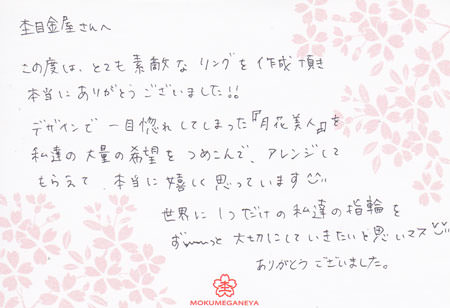 杢目金屋さんへ
この度は、とても素敵なリングを作成頂き
本当にありがとうございました!!
デザインで一目惚れしてしまった『月花美人』を
私達の大量の希望をつめこんで、アレンジして
もらえて、本当に嬉しく思っています
世界に1つだけの私達の指輪を
ず〜〜っと大切にしていきたいと思いマス
ありがとうございました。
MOKUMEGANEYA